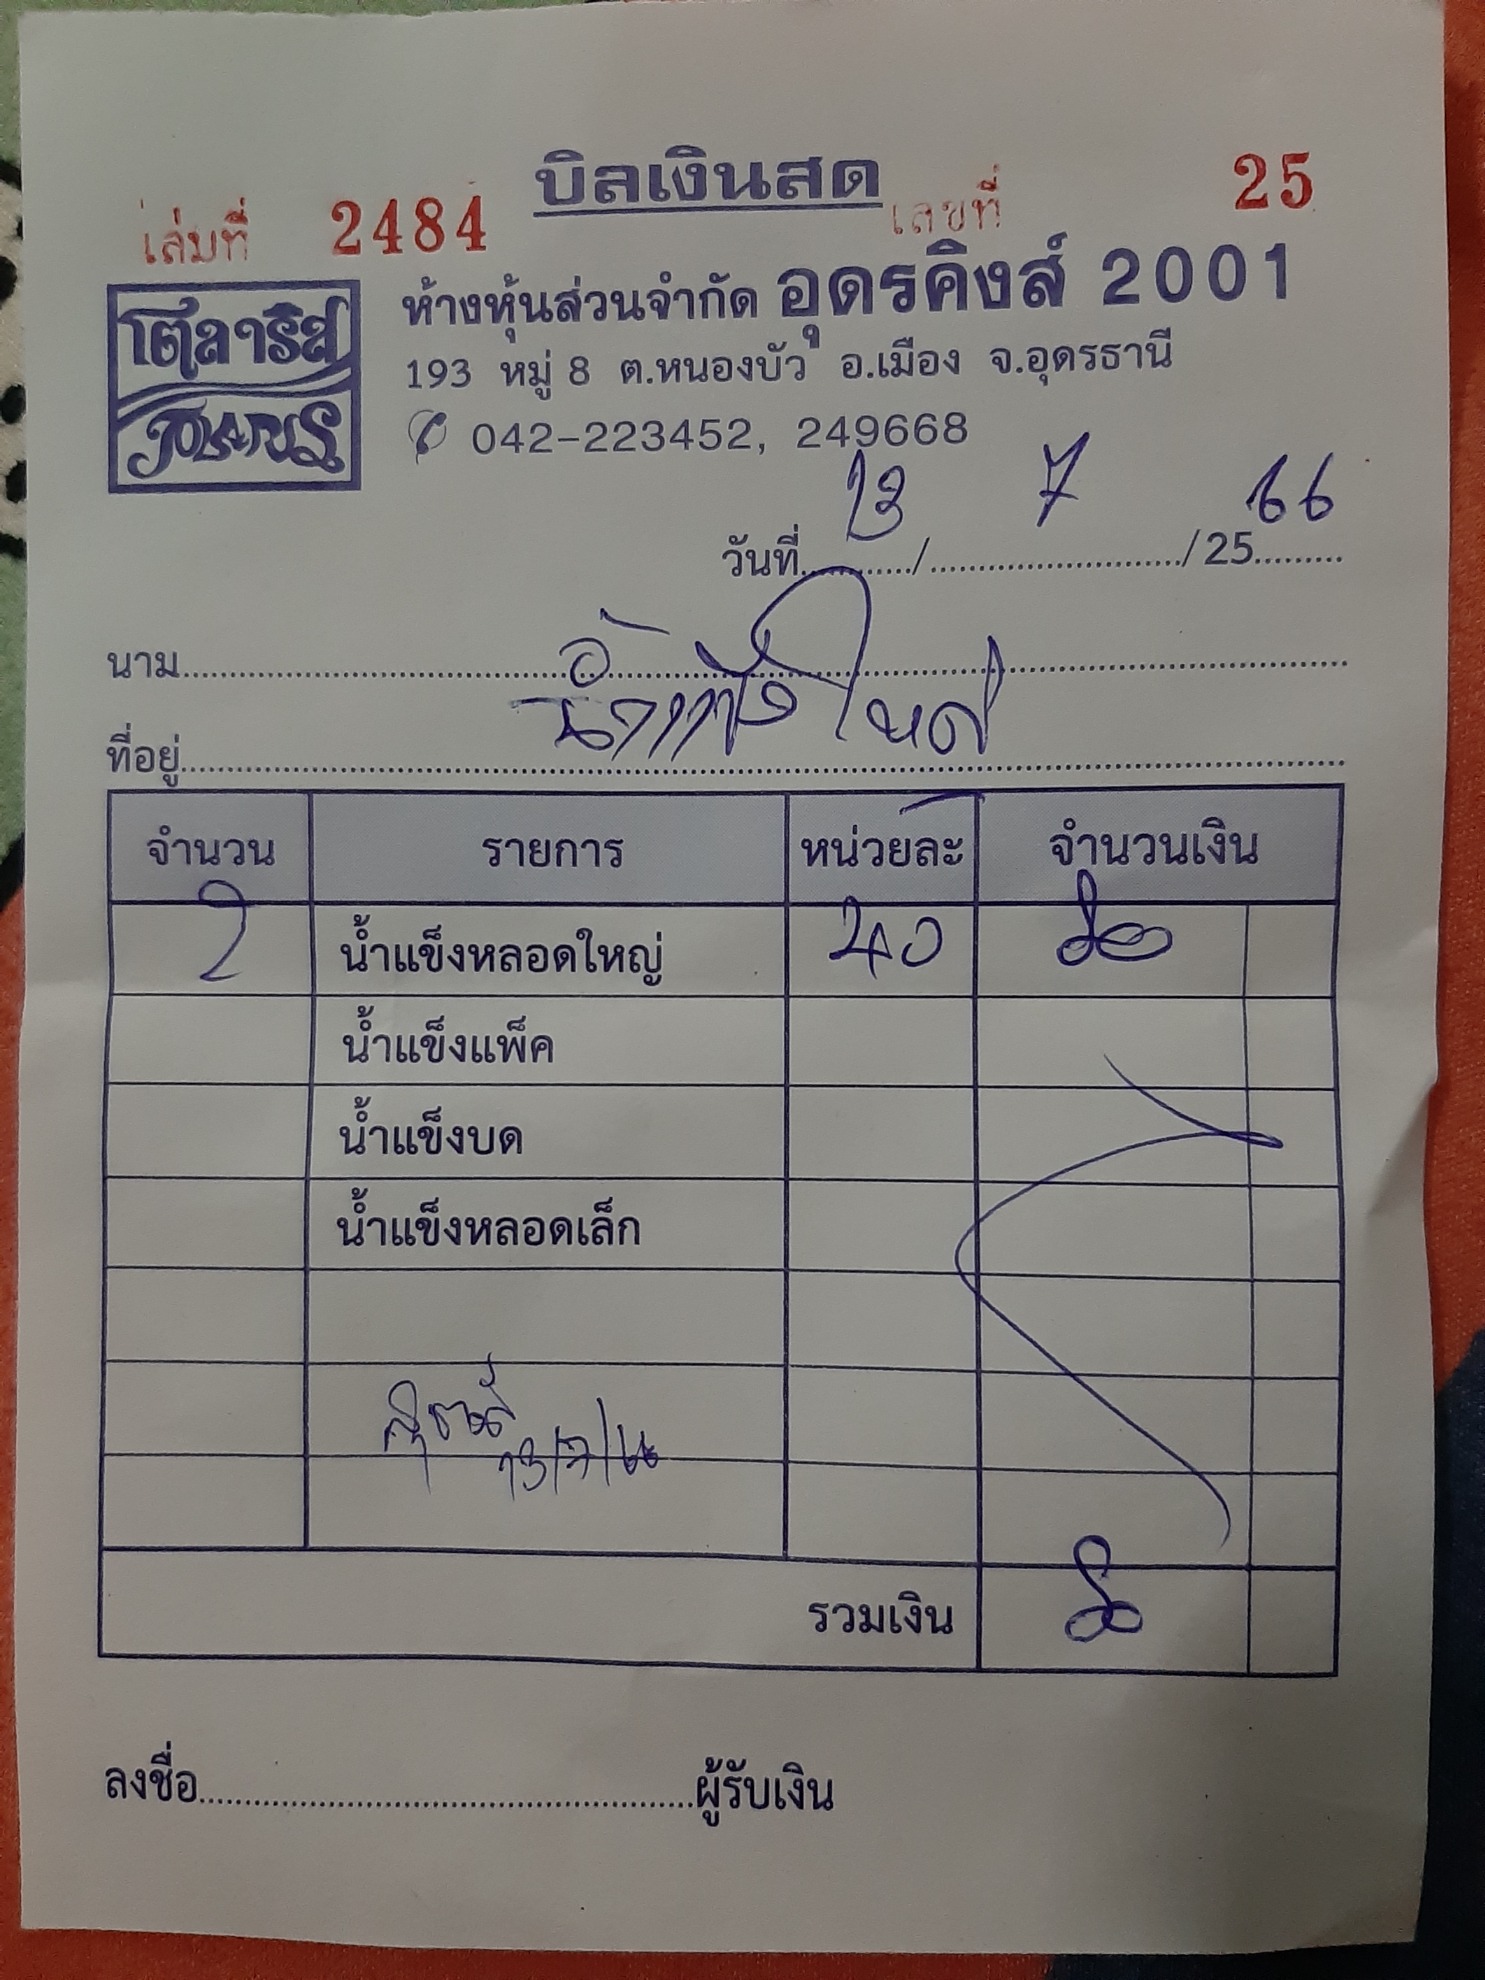 บิลเงินสด
เล่มที่ 2484 เลขที่ 25
โตลาริส
ห้างหุ้นส่วนจำกัด อุดรคิงส์ 2001
193 หมู่ 8 ต.หนองบัว อ.เมือง จ.อุดรธานี
042-223452, 249668
วันที่ 13 / 7 / 25 66
นาม
ที่อยู่
จำนวน รายการ หน่วยละ จำนวนเงิน
2 น้ำแข็งหลอดใหญ่ 40 80
น้ำแข็งแพ็ค
น้ำแข็งบด
น้ำแข็งหลอดเล็ก
13/7/66
รวมเงิน 80
ลงชื่อ ผู้รับเงิน